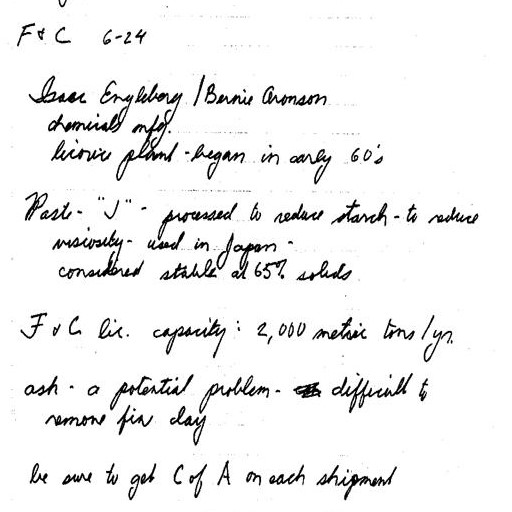 F & C 6-24
Isaac Engleberg / Bernie Aronson
chemicals mfg.
licorice plant - began in early 60's
Paste - "J" - processed to reduce starch - to reduce
viscosity - used in Japan -
considered stable at 65% solids
F & C lic. capacity: 2,000 metric tons/yr.
ash - a potential problem - difficult to
remove fin clay
be sure to get C of A on each shipment